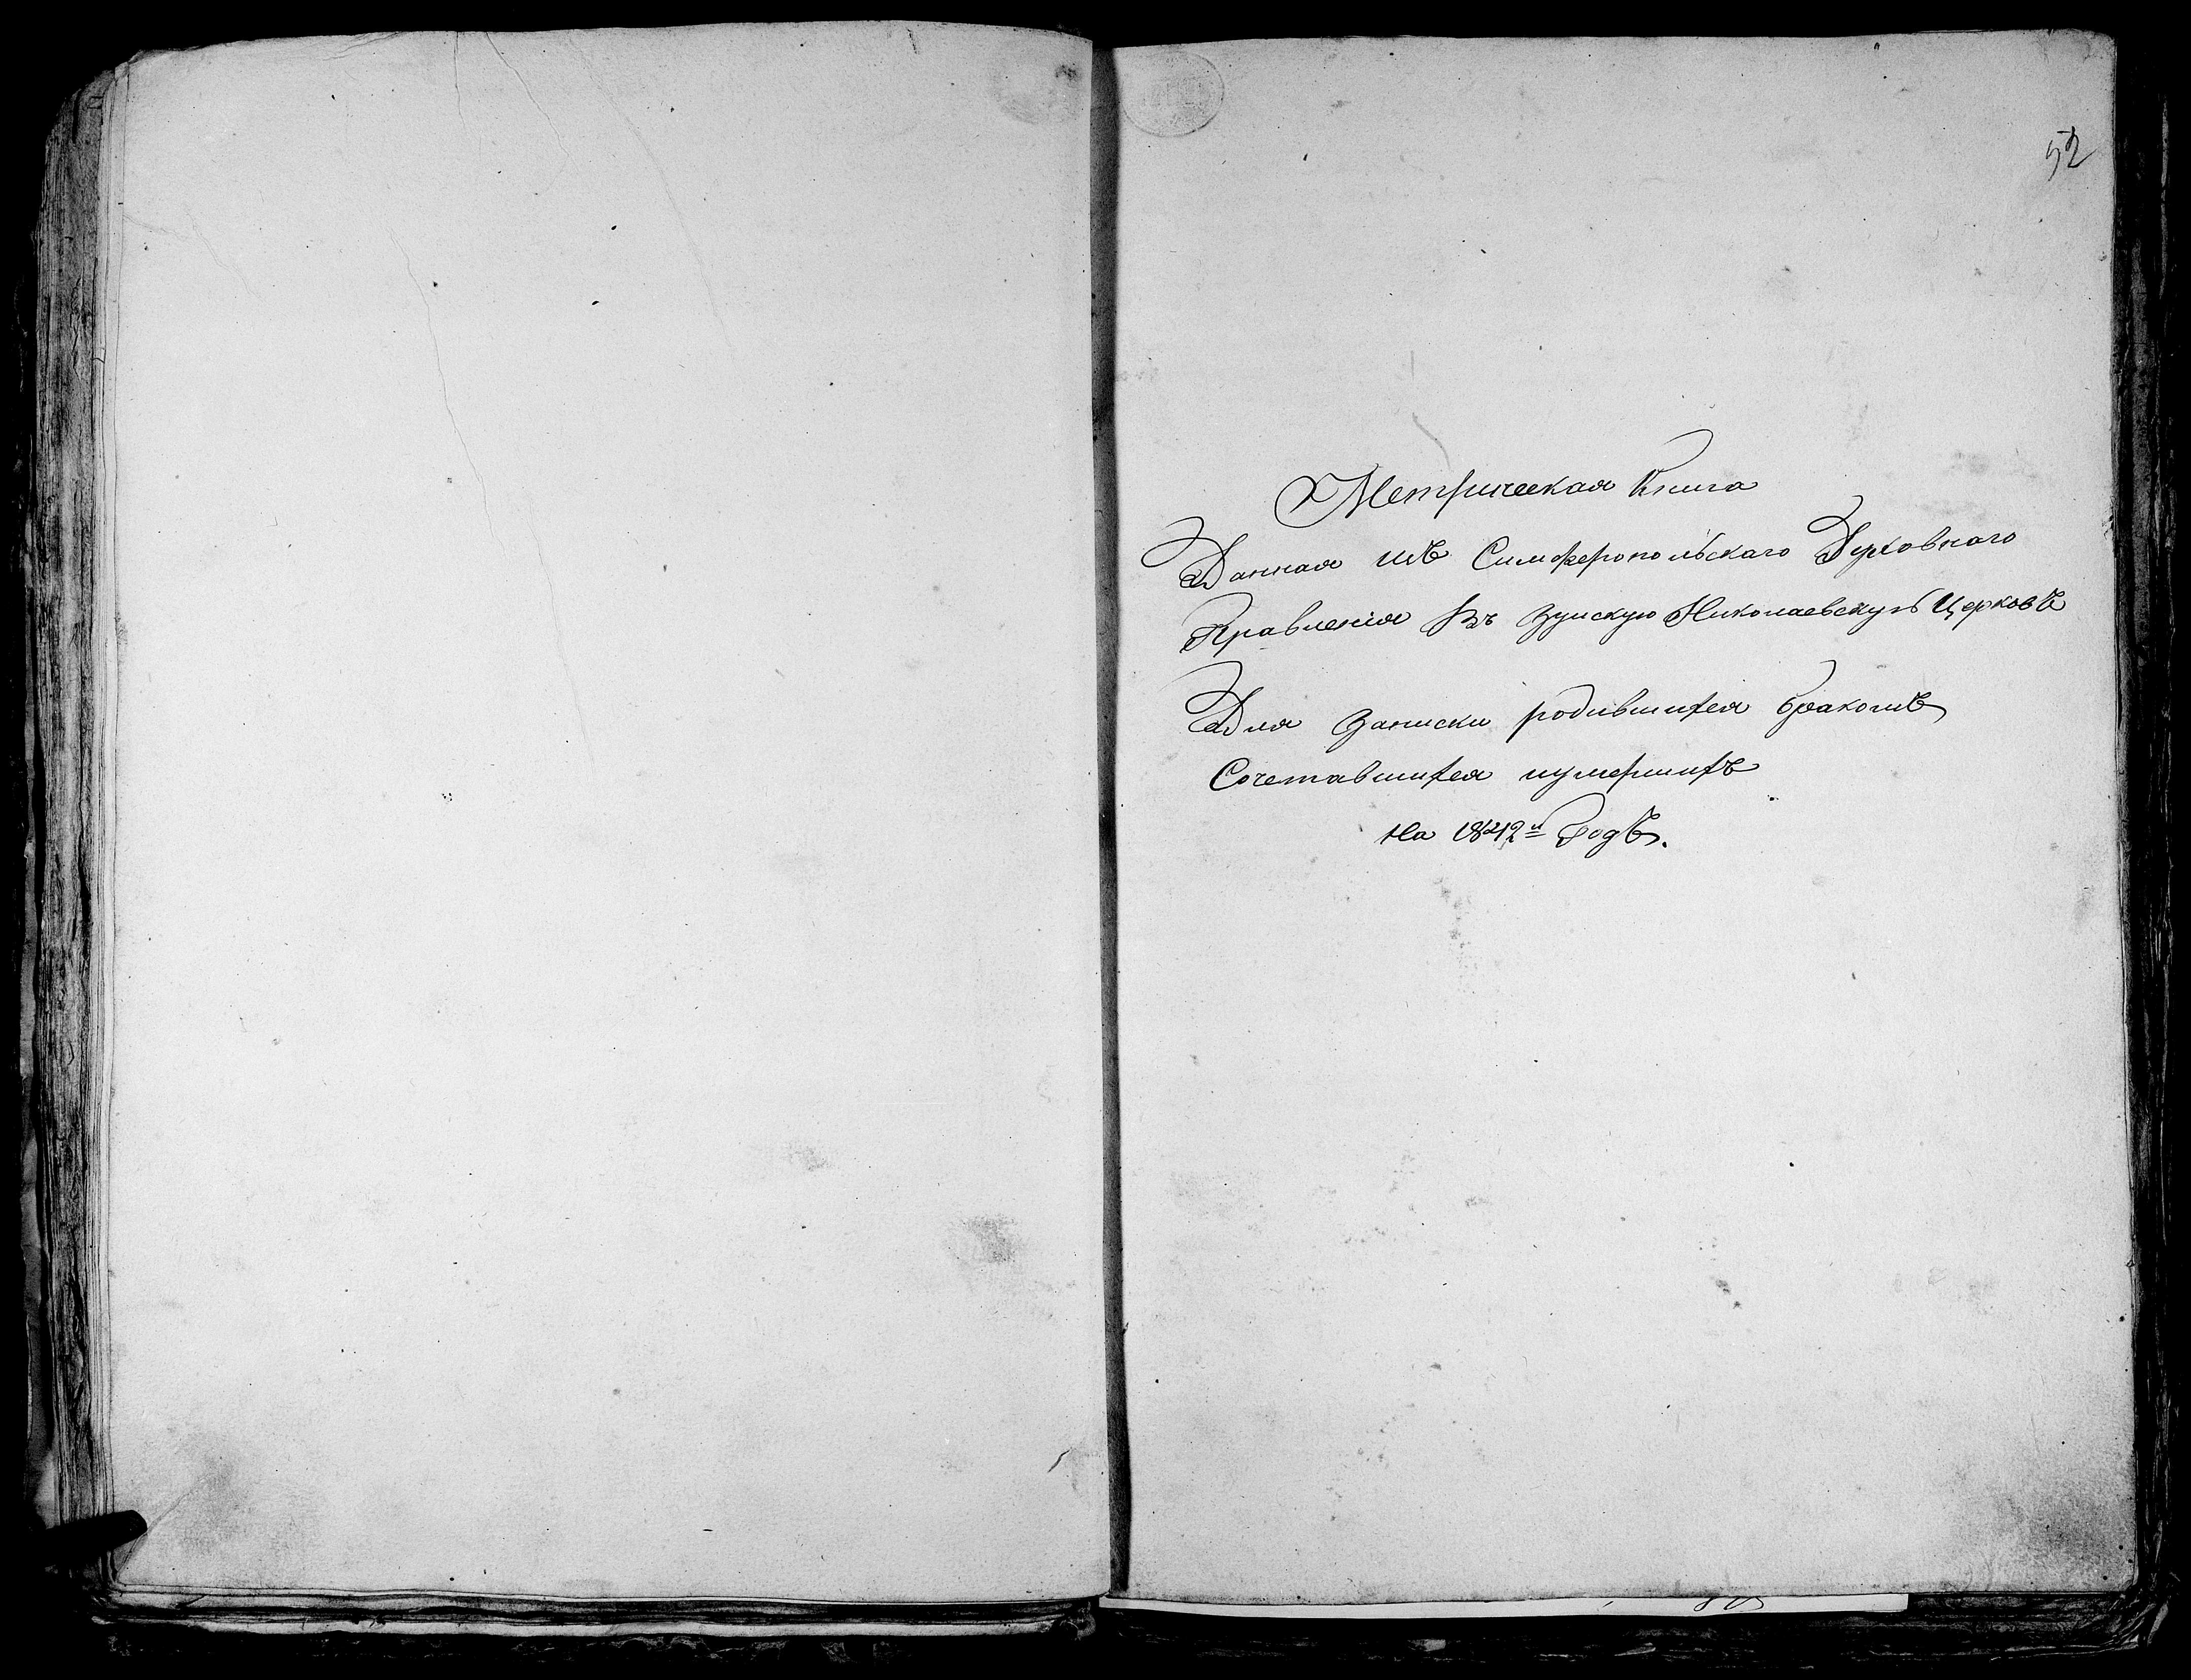 52
Метрическая Книга
Данная изъ Симферопольскаго Духовнаго
Правленія Въ Зуйскую Николаевскую Церковь
Для Записки родившихся бракомъ
Сочетавшихся иумершихъ
На 1842й Годъ.